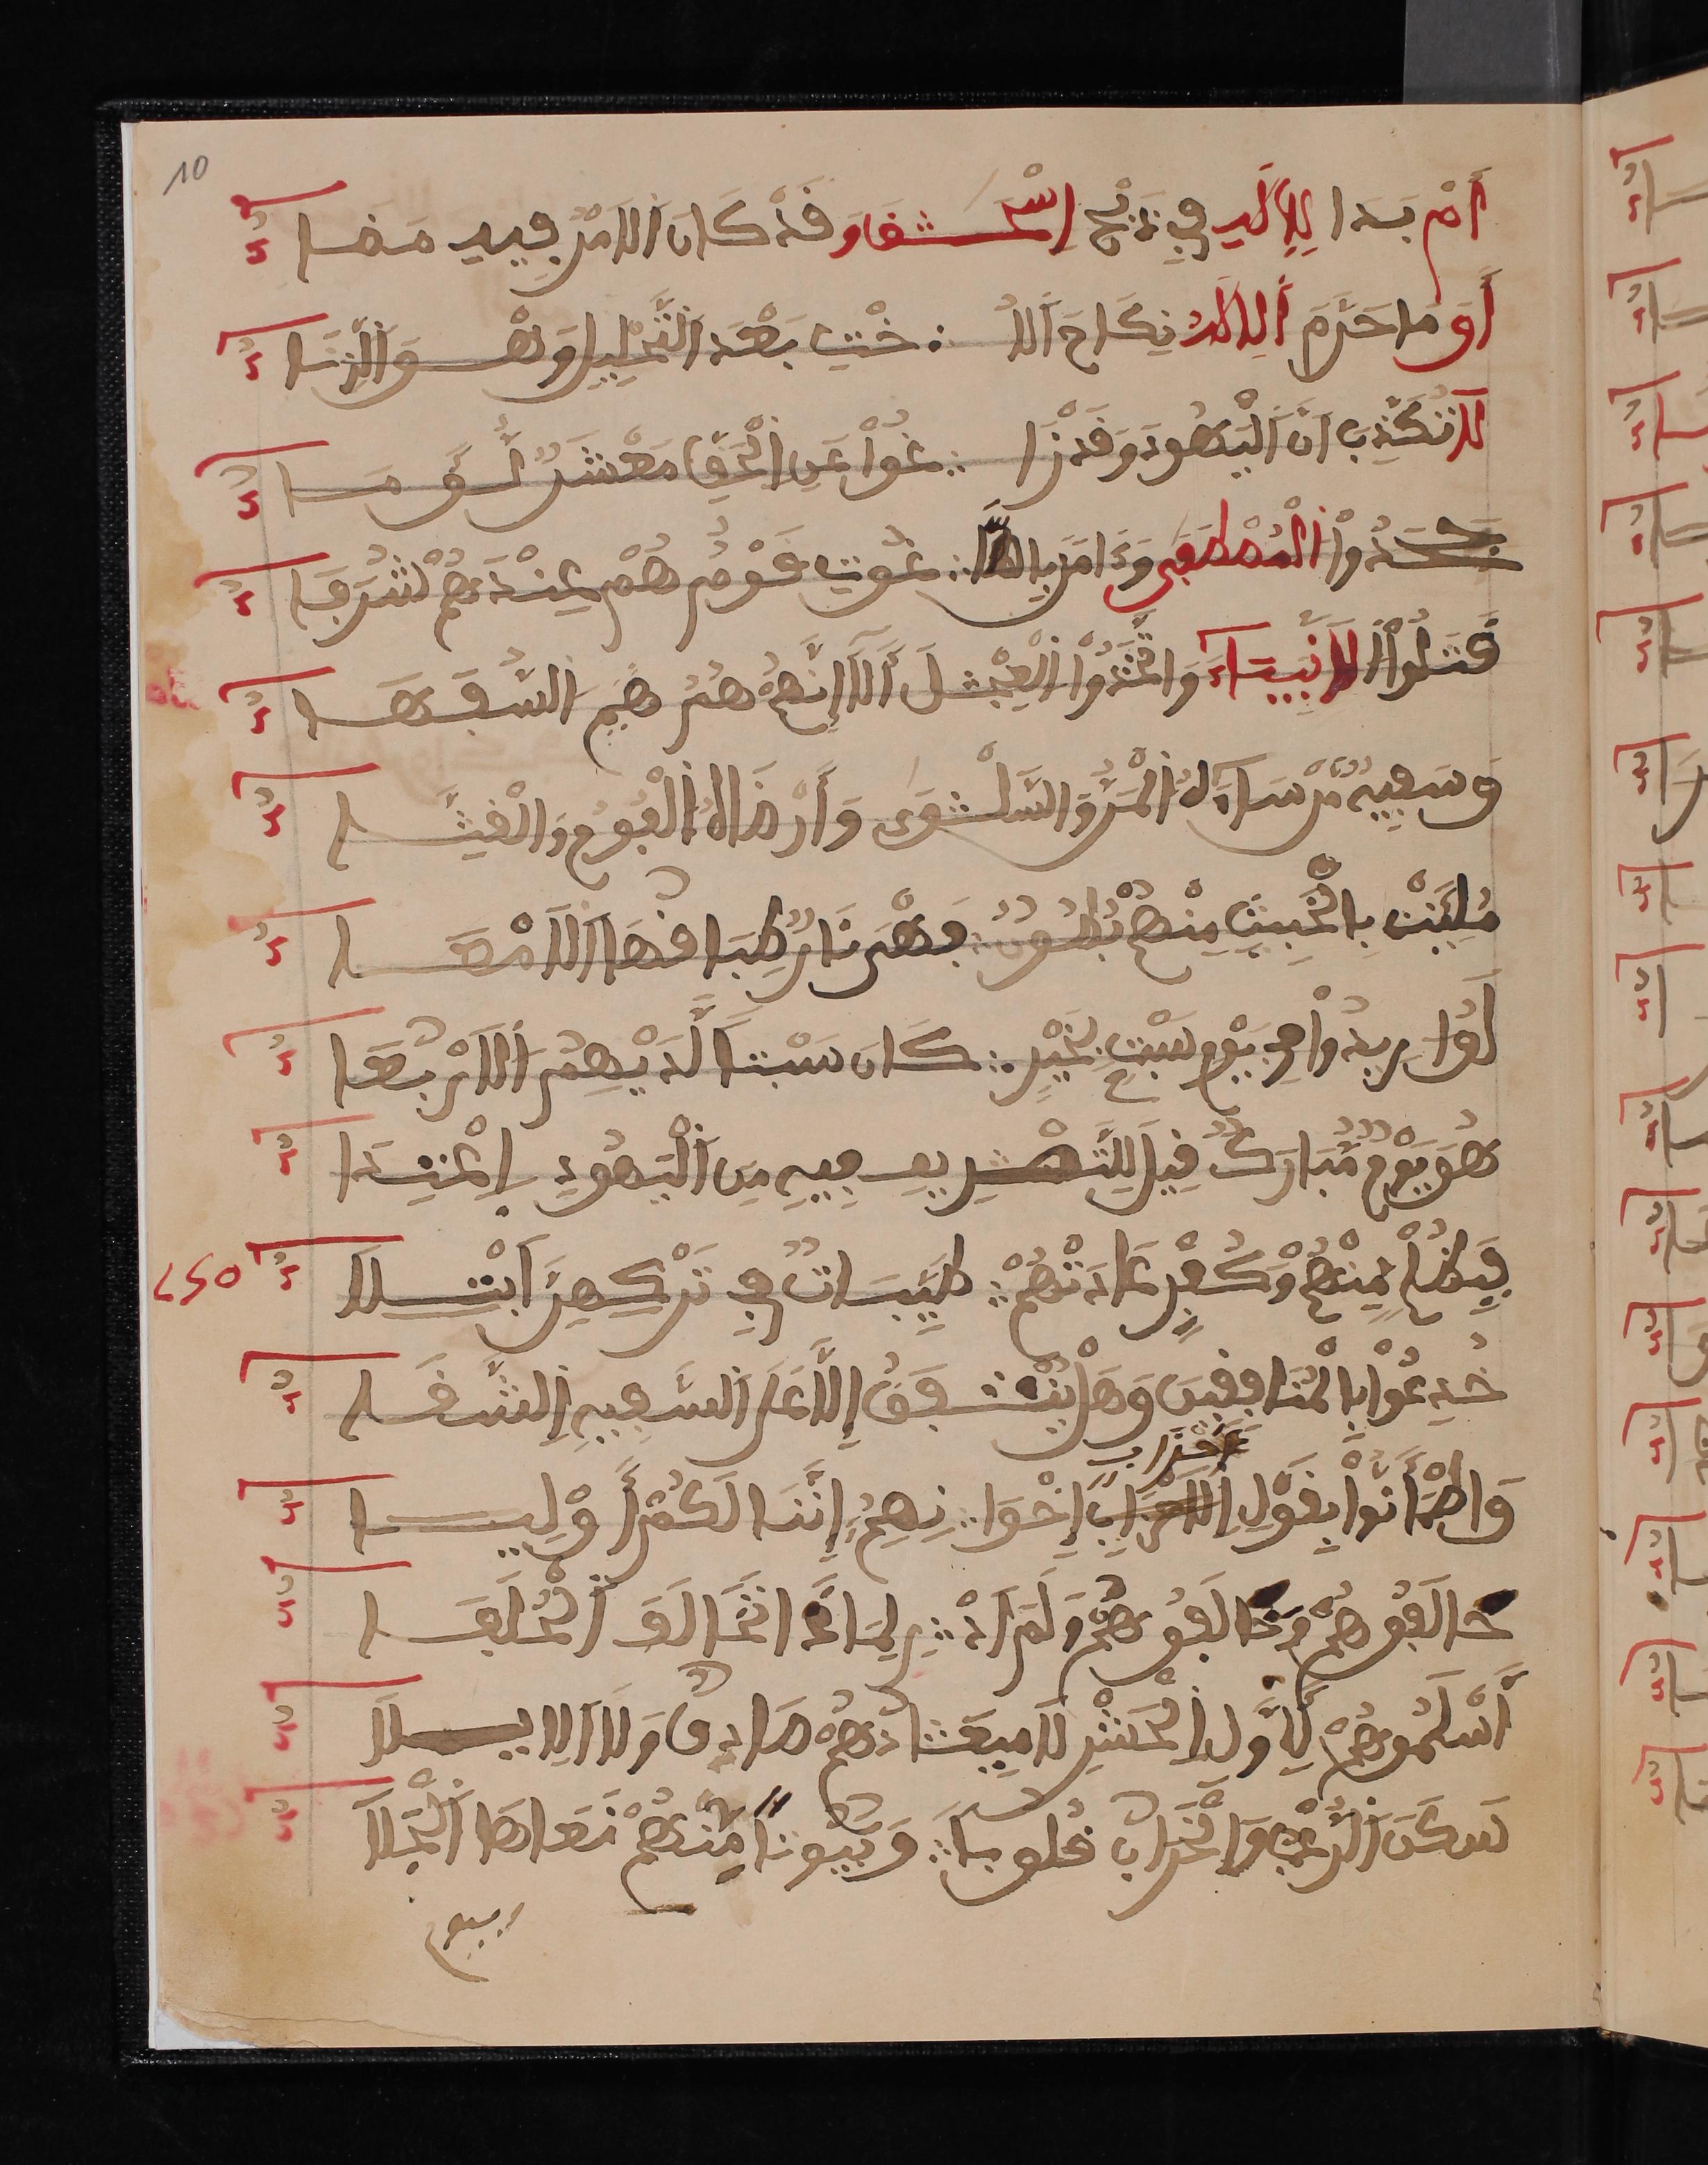 10
أَمْ بَدَا لِلْإِلَٰهِ فِي ذَبْحِ إِسْحَٰقَ وَقَدْ كَانَ الْأَمْرُ فِيهِ مَضَا
أَوَ مَا حَرَّمَ الْإِلَٰهُ نِكَاحَ الْأُ ∴ خْتِ بَعْدَ التَّحْلِيلِ وَهْوَ الزِّنَا
لَا تُكَذِّبْ أَنَّ الْيَهُودَ وَقَدْ زَا ∴ غُوا عَنِ الْحَقِّ مَعْشَرٌ لُؤَمَا
جَحَدُوا الْمُصْطَفَى وَءَامَنَ بِالطَّا ∴ غُوتِ قَوْمٌ هُمْ عِنْدَهُمْ شُرَفَا
قَتَلُوا الْأَنْبِيَاءَ وَاتَّخَذُوا الْعِجْلَ أَلَا إِنَّهُمْ هُمُ السُّفَهَا
وَسَفِيهٌ مَنْ سَاءَهُ الْمَنُّ وَالسَّلْوَى وَأَرْضَاهُ الْفُومُ وَالْقِثَّا
مُلِئَتْ بِالْخَبِيثِ مِنْهُمْ بُطُونٌ ∴ فَهْيَ نَارٌ طِبَاقُهَا الْأَمْعَا
لَوْ أُرِيدُوا فِي يَوْمِ سَبْتٍ بِخَيْرٍ ∴ كَانَ سَبْتًا لَدَيْهِمُ الْأَرْبُعَا
هُوَ يَوْمٌ مُبَارَكٌ قِيلَ لِلتَّصْرِيفِ فِيهِ مِنَ الْيَهُودِ اعْتِدَا
فَبِظُلْمٍ مِنْهُمْ وَكُفْرٍ عَدَتْهُمْ ∴ طَيِّبَاتٌ فِي تَرْكِهِنَّ ابْتِلَا
250
خُدِعُوا بِالْمُنَافِقِينَ وَهَلْ يُنْفَقُ إِلَّا عَلَى السَّفِيهِ الشَّقَا
وَاطْمَأَنُّوا بِقَوْلِ الْأَحْزَابِ إِخْوَا ∴ نِهِمُ إِنَّنَا لَكُمْ أَوْلِيَا
حَالَفُوهُمْ وَخَالَفُوهُمْ وَلَمْ أَدْ ∴ رِ لِمَاذَا تَخَالَفَ الْحُلَفَا
أَسْلَمُوهُمْ لِأَوَّلِ الْحَشْرِ لَا مِيعَادُهُمْ صَادِقٌ وَلَا الْإِيلَا
سَكَنَ الرُّعْبُ وَالْخَرَابُ قُلُوبًا ∴ وَبُيُوتًا مِنْهُمْ نَعَاهَا الْجَلَا
وبيوم